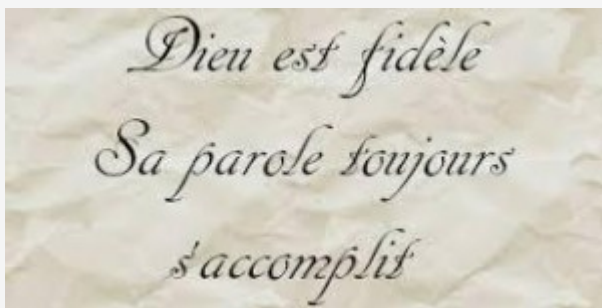 Dieu est fidèle
Sa parole toujours
s'accomplit